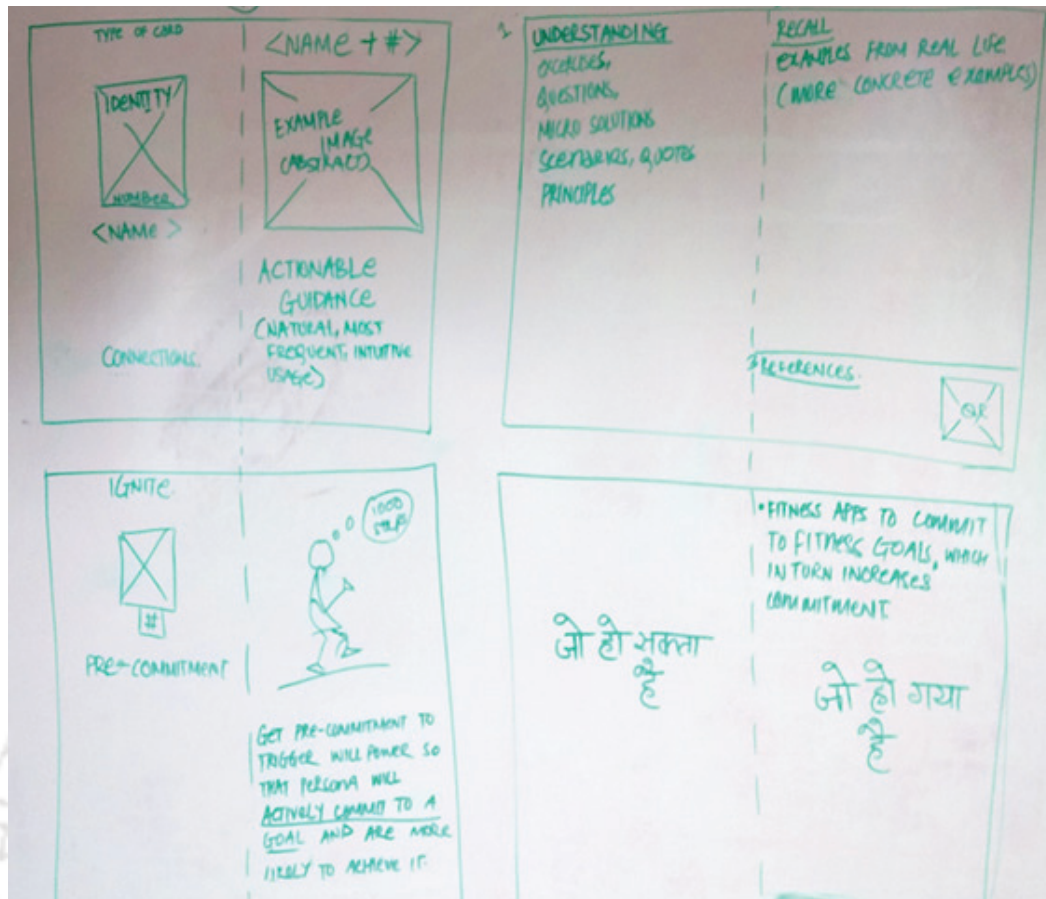 TYPE OF CARD
IDENTITY
NUMBER
<NAME>
CONNECTIONS.
<NAME + #>
EXAMPLE
IMAGE
(ABSTRACT)
ACTIONABLE
GUIDANCE
(NATURAL, MOST
FREQUENT, INTUITIVE
USAGE)
2
UNDERSTANDING
EXERCISES,
QUESTIONS,
MICRO SOLUTIONS
SCENARIOS, QUOTES
PRINCIPLES
RECALL
EXAMPLES FROM REAL LIFE
(MORE CONCRETE EXAMPLES)
3 REFERENCES.
QR
IGNITE.
#
PRE-COMMITMENT
1000
STEPS
GET PRE-COMMITMENT TO
TRIGGER WILL POWER SO
THAT PERSONA WILL
ACTIVELY COMMIT TO A
GOAL AND ARE MORE
LIKELY TO ACHIEVE IT.
जो हो सकता
है
• FITNESS APPS TO COMMIT
TO FITNESS GOALS, WHICH
IN TURN INCREASES
COMMITMENT.
जो हो गया
है